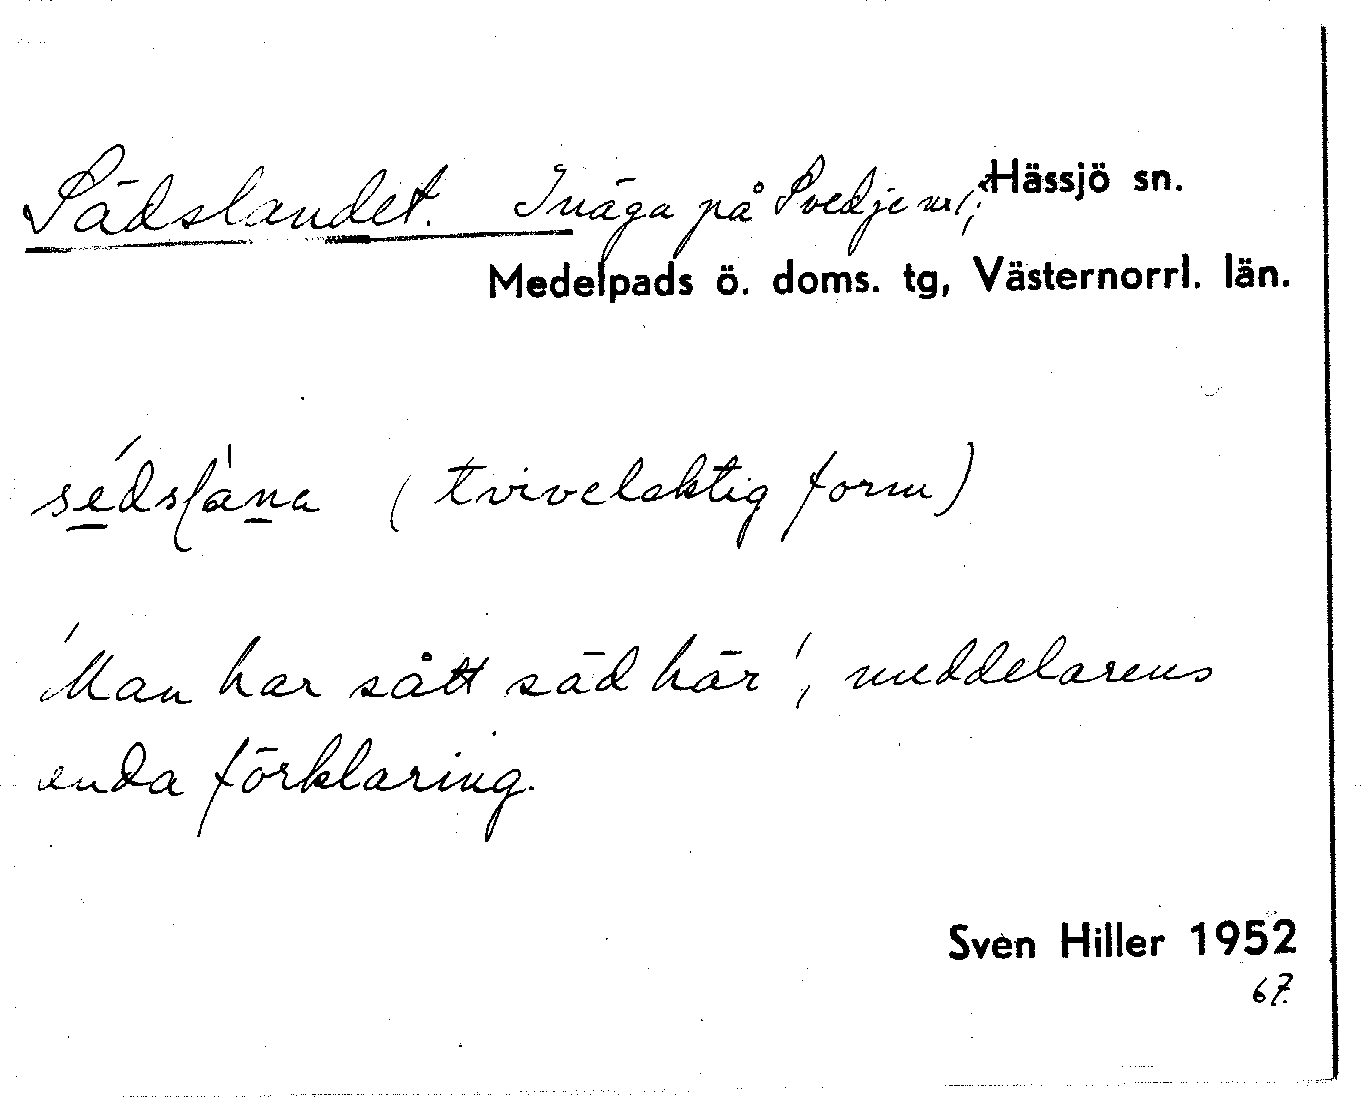 Sädslandet. Inäga på Svedje nr 1, Hässjö sn.
Medelpads ö. doms. tg, Västernorrl. län.
(tvivelaktig form)
'Man har sått säd här', meddelarens
enda förklaring.
Sven Hiller 1952
67.